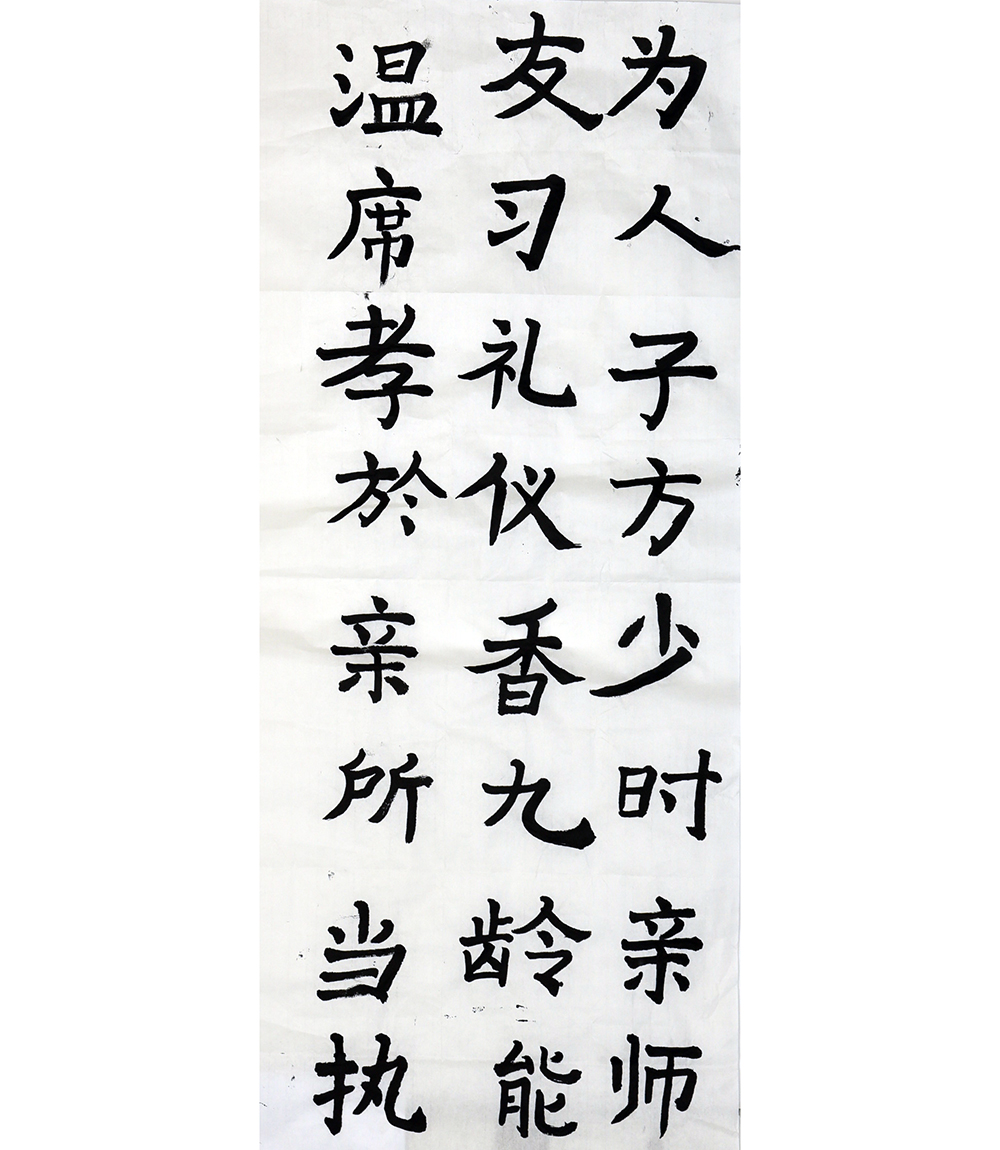 为人子方少时亲师
友习礼仪香九龄能
温席孝於亲所当执